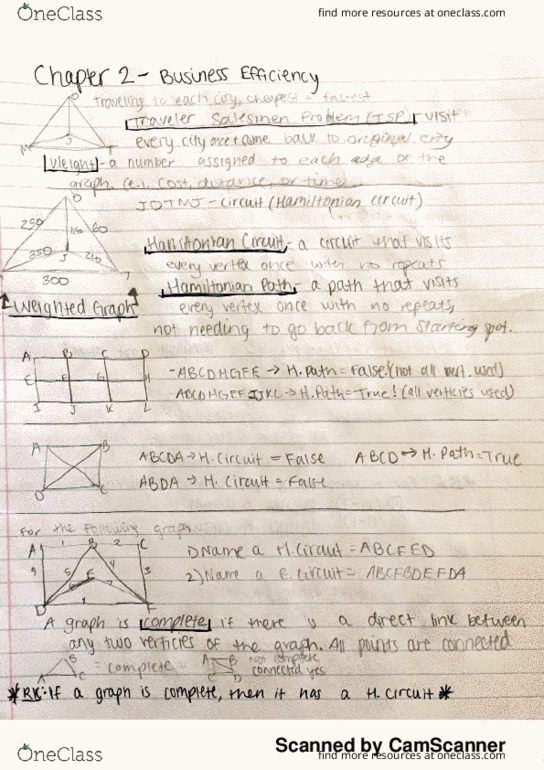 OneClass
find more resources at oneclass.com
Chapter 2 - Business Efficiency
Traveling to each city, cheapest + fastest
Traveler Salesmen Problem (TSP) visit
every city once + come back to original city
M J T
Weight - a number assigned to each edge of the
graph. (e.i. cost, distance, or time)
JOTMJ - circuit (Hamiltonian circuit)
250 60
350 J
300
Hamiltonian Circuit - a circuit that visits
every vertex once with no repeats
Hamiltonian Path - a path that visits
every vertex once with no repeats,
not needing to go back from starting spot.
Weighted Graph
A B C D
- ABCDHGFE → H. Path = False! (not all vert. used)
- ABCDHGFEIJKL → H. Path = True! (all verticies used)
I J K L
A B
D C
ABCDA → H. Circuit = False ABCD → H. Path = True
ABDA → H. Circuit = False
For the following graph
A 1 B 2 C
1) Name a H. Circuit = ABCFED
2) Name a E. Circuit = ABCFBDEFDA
9 5 E 4 3
A graph is complete if there is a direct link between
any two verticies of the graph. All points are connected
B
A C
= complete
A B
C D
Not complete
connected yes
*RK: If a graph is complete, then it has a H. Circuit *
Scanned by CamScanner
OneClass
find more resources at oneclass.com